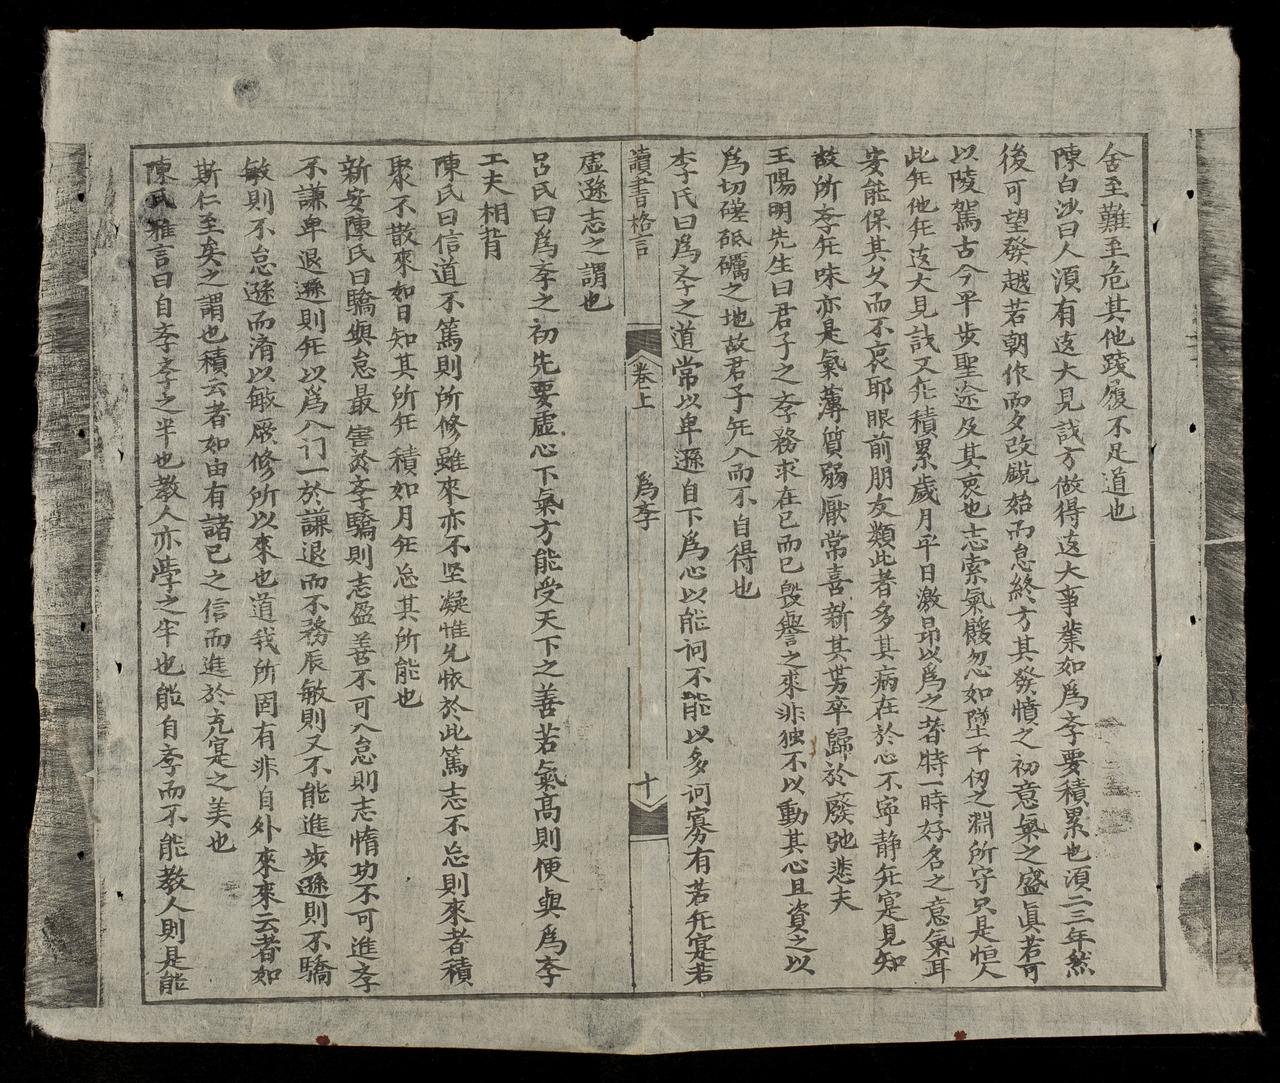 舍至難至危其他踐履不足道也
陳白沙曰人須有遠大見識方做得遠大事業如爲斈要積累也須二三年然
後可望發越若朝作而夕改銳始而怠終方其發憤之初意氣之盛眞若可
以陵駕古今平步聖途及其衰也志索氣餒忽如墜千仞之淵所守只是恒人
此無他無遠大見識又無積累歲月平日激昂以爲之者特一時好名之意氣耳
安能保其久而不衰耶眼前朋友類此者多其病在於心不寧静無寔見知
故所斈無味亦是氣薄質弱厭常喜新其势卒歸於廢弛悲夫
王陽明先生曰君子之斈務求在己而已毁譽之來非独不以動其心且資之以
爲切磋砥礪之地故君子無入而不自得也
李氏曰爲斈之道常以卑遜自下爲心以能问不能以多问寡有若無寔若
讀書格言 卷上 爲斈 十
虚遜志之謂也
呂氏曰爲斈之初先要虚心下氣方能受天下之善若氣高則便與爲斈
工夫相背
陳氏曰信道不篤則所修雖來亦不坚凝惟先依於此篤志不忘則來者積
聚不散來如日知其所無積如月無忘其所能也
新安陳氏曰驕與怠最害於斈驕則志盈善不可入怠則志惰功不可進斈
不謙卑退遜則無以爲入门一於謙退而不務辰敏則又不能進步遜則不驕
敏則不怠遜而濟以敏厥修所以來也道我所固有非自外來來云者如
斯仁至矣之謂也積云者如由有諸己之信而進於充寔之美也
陳氏雅言曰自斈斈之半也教人亦斈之半也能自斈而不能教人則是能